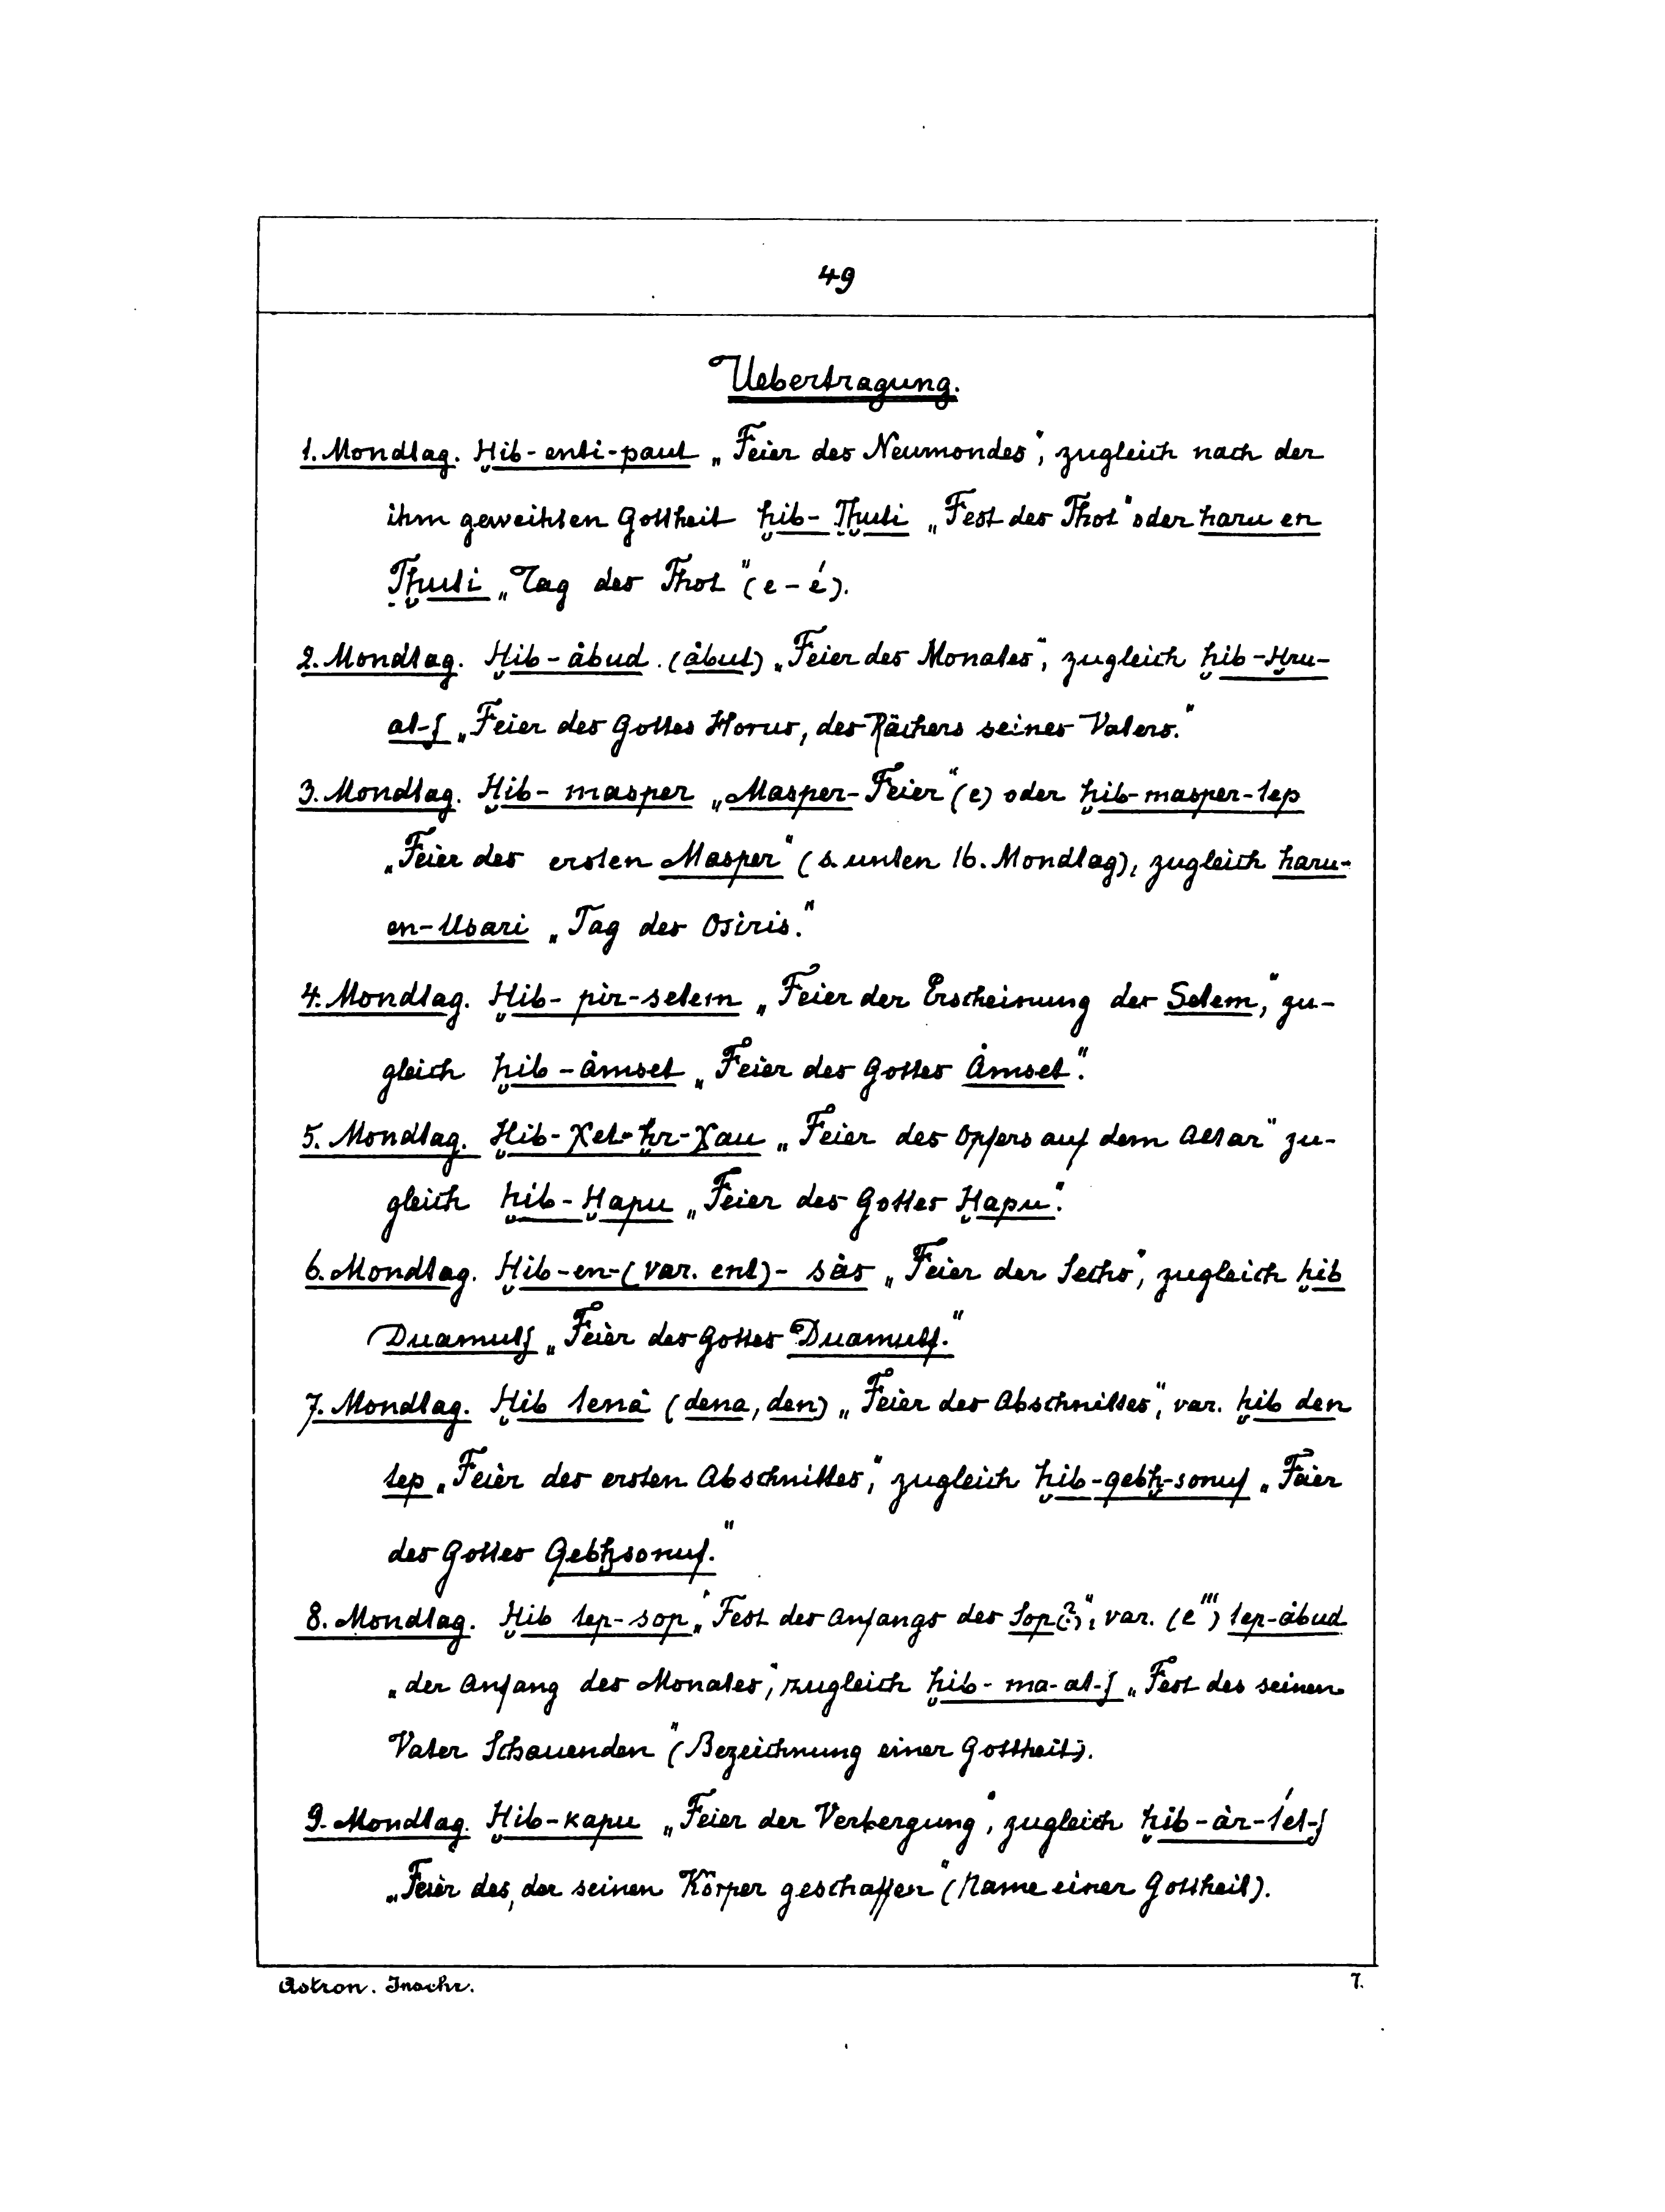 49
Uebertragung.
1. Mondtag. Ḥib-enti-paut „Feier des Neumondes“, zugleich nach der
ihm geweihten Gottheit ḥib-Ṭḥuti „Fest des Thot“ oder haru en
Ṭḥuti „Tag des Thot“ (e-é).
2. Mondtag. Ḥib-ȧbud. (ȧbut) „Feier des Monates“, zugleich ḥib-Ḥru-
at-f „Feier des Gottes Horus, des Rächers seines Vaters.“
3. Mondtag. Ḥib-masper „Masper-Feier“ (e) oder ḥib-masper-tep
„Feier des ersten Masper“ (s. unten 16. Mondtag), zugleich haru-
en-Usari „Tag des Osiris.“
4. Mondtag. Ḥib-pir-setem „Feier der Erscheinung des Setem“, zu-
gleich ḥib-ȧmset „Feier des Gottes Ȧmset“.
5. Mondtag. Ḥib-χet-ḥr-χau „Feier des Opfers auf dem Altar“ zu-
gleich ḥib-Ḥapu „Feier des Gottes Ḥapu“.
6. Mondtag. Ḥib-en-(var. ent)-sȧs „Feier der Sechs“, zugleich ḥib
Duamutf „Feier des Gottes Duamutf.“
7. Mondtag. Ḥib tenȧ (dena, den) „Feier des Abschnittes“, var. ḥib den
tep „Feier des ersten Abschnittes“, zugleich ḥib-qebḥ-sonuf „Feier
des Gottes Qebḥsonuf.“
8. Mondtag. Ḥib tep-sop „Fest des Anfangs des Sop(?)“, var. (e''') tep-ȧbud
„der Anfang des Monates“, zugleich ḥib-ma-at-f „Fest des seinen
Vater Schauenden“ (Bezeichnung einer Gottheit).
9. Mondtag. Ḥib-kapu „Feier der Verbergung“, zugleich ḥib-ȧr-t́et-f
„Feier des, der seinen Körper geschaffen“ (Name einer Gottheit).
Astron. Inschr. 7.